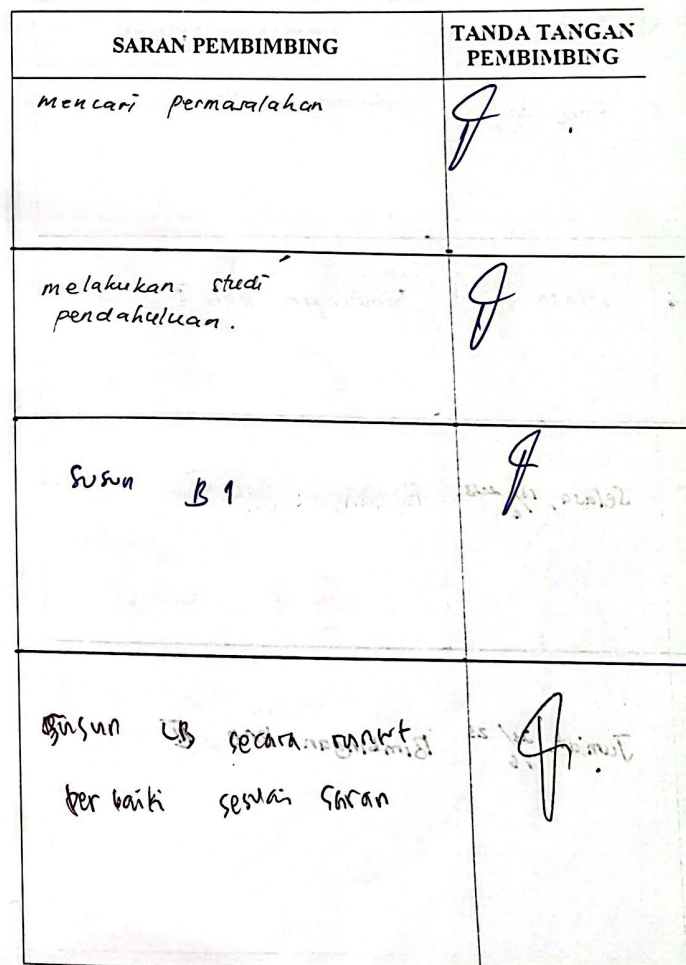 SARAN PEMBIMBING
TANDA TANGAN
PEMBIMBING
mencari permasalahan
melakukan studi
pendahuluan.
Susun B 1
secara runut
perbaiki sesuai saran